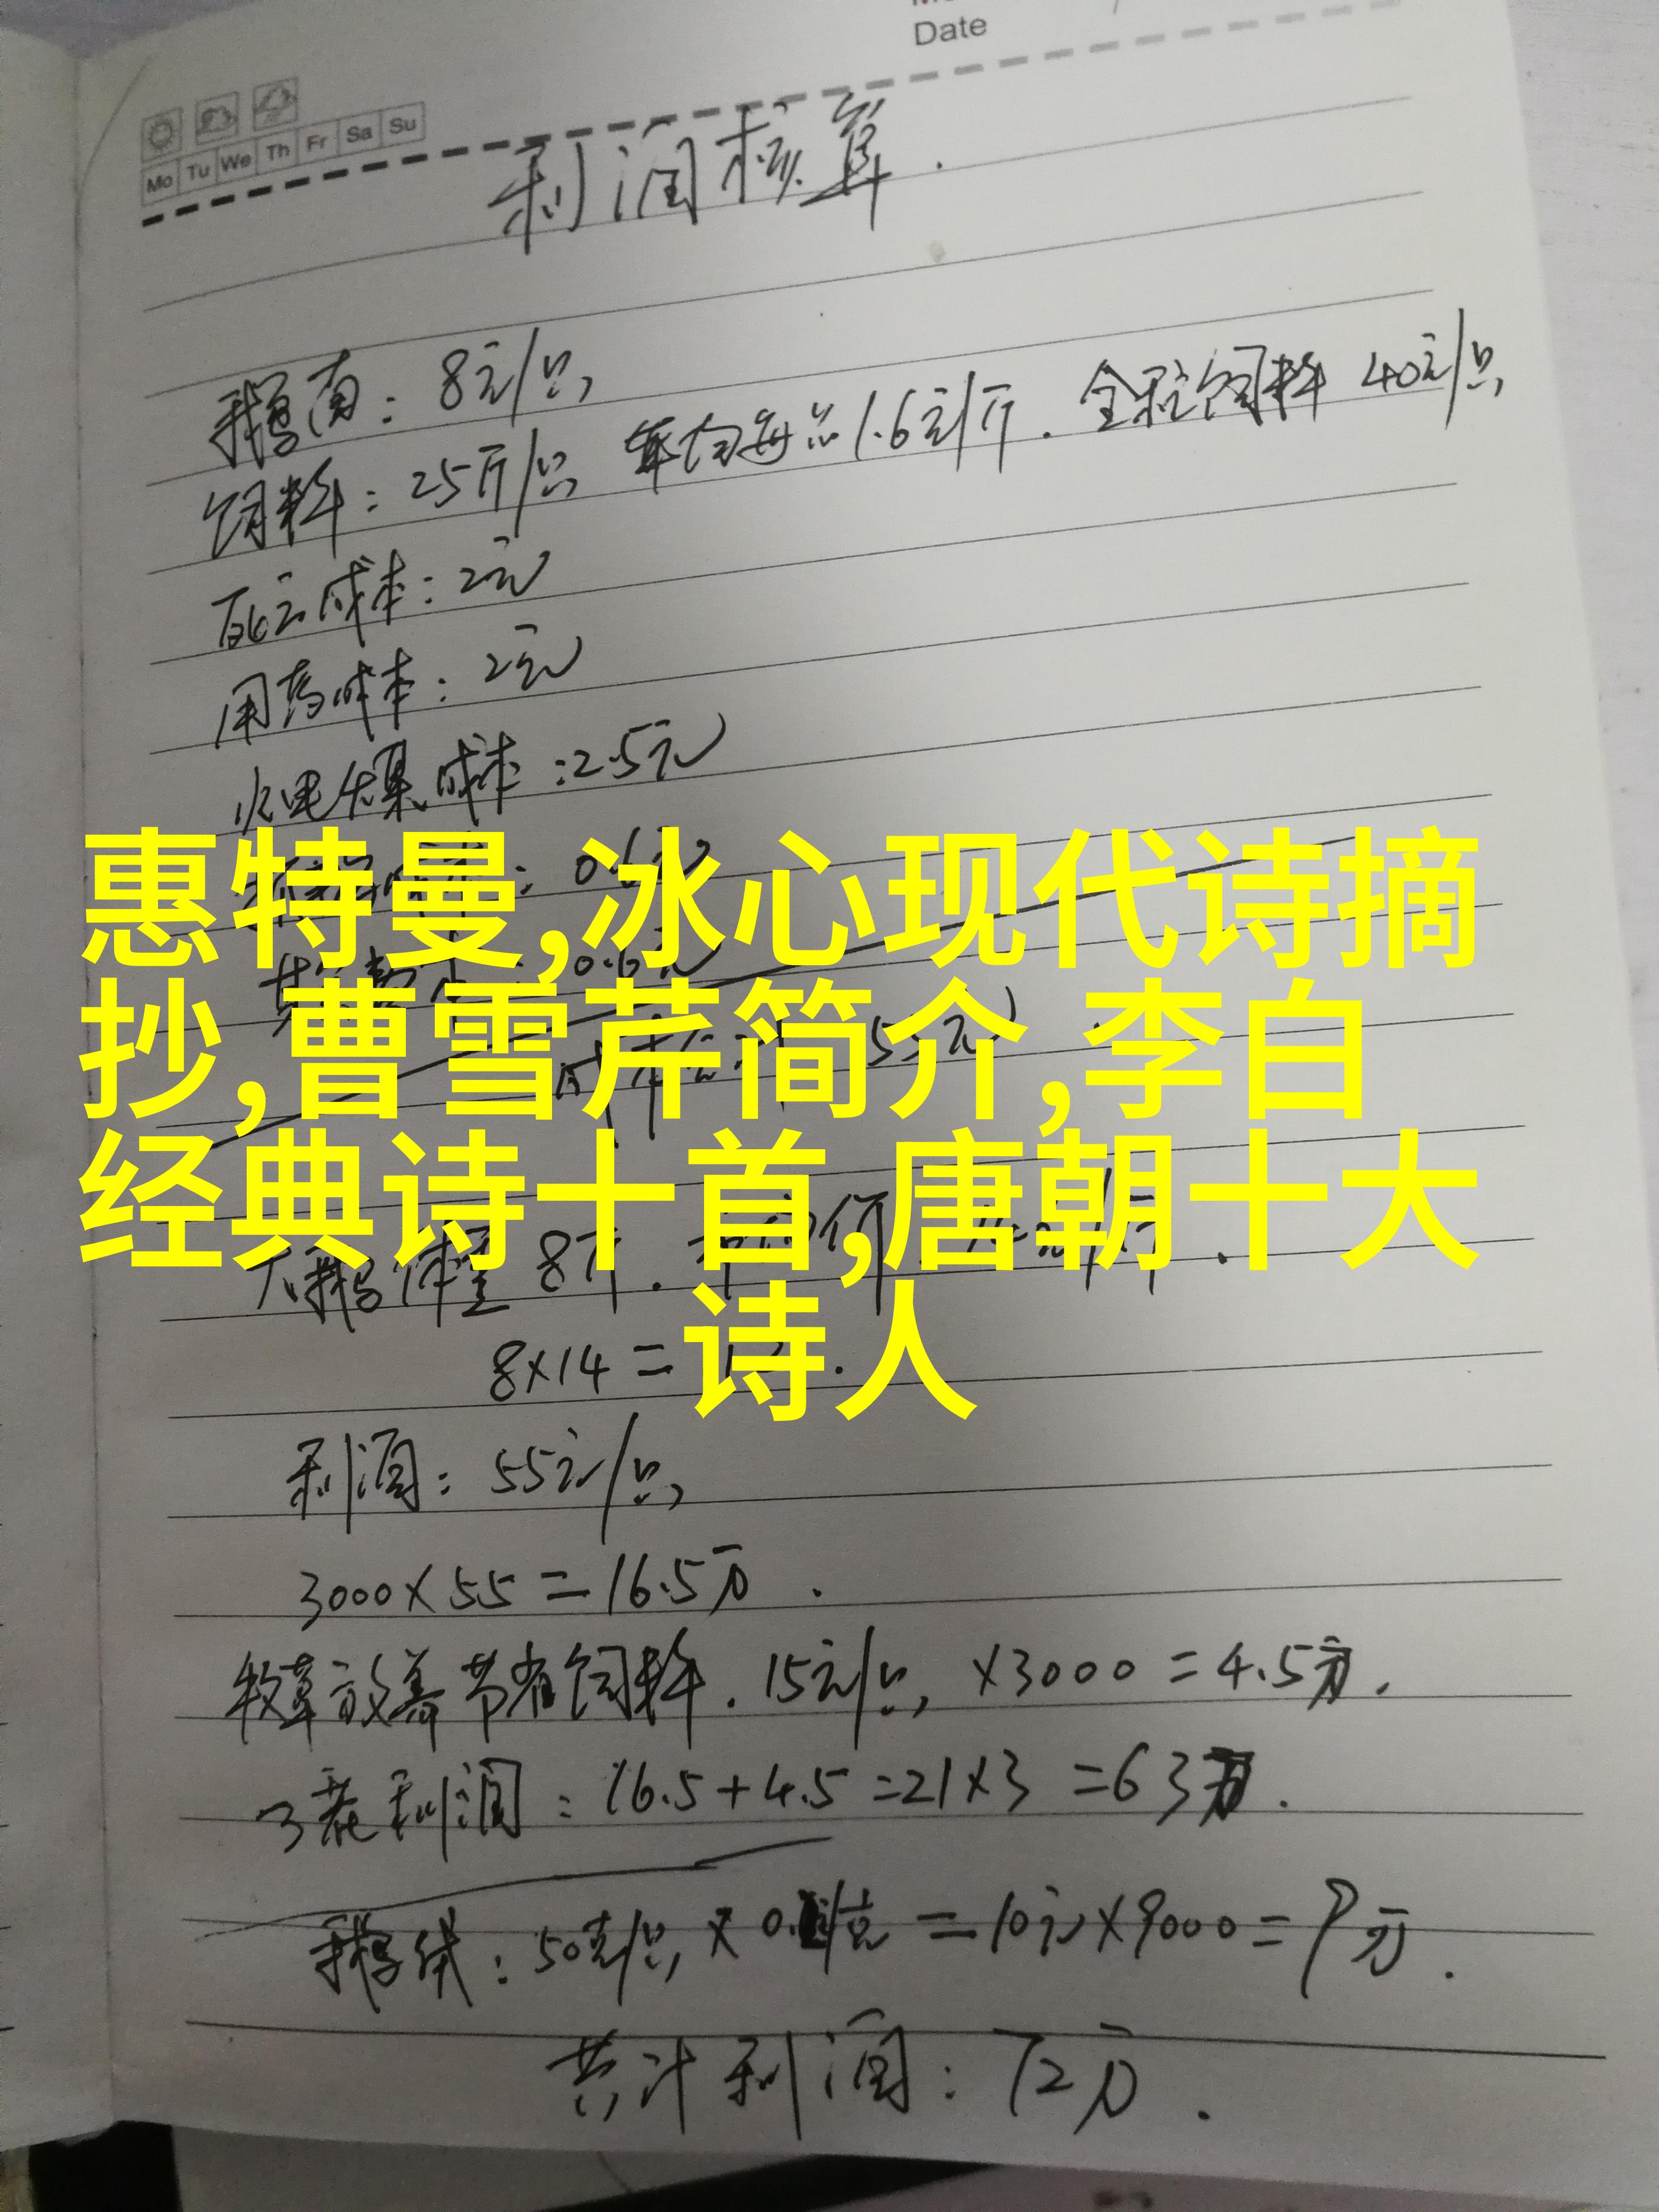 Date
Mo Tu We Th Fr Sa Su
利润核算.
鹅苗: 8元/只,
饲料: 25斤/只, 1.6元/斤. 全程饲料 40元/只,
死亡成本: 2元
用药成本: 2元
水电煤成本: 2.5元
惠特曼,冰心现代诗摘
抄,曹雪芹简介,李白
经典诗十首,唐朝十大
诗人
大鹅体重 8斤.
8×14=
利润: 55元/只,
3000×55=16.5万.
牧草放养节省饲料. 15元/只, ×3000=4.5万.
3茬利润: 16.5+4.5=21×3=63万.
鹅绒: 50克/只, ×0. /克=10元×9000=9万.
共计利润: 72万.